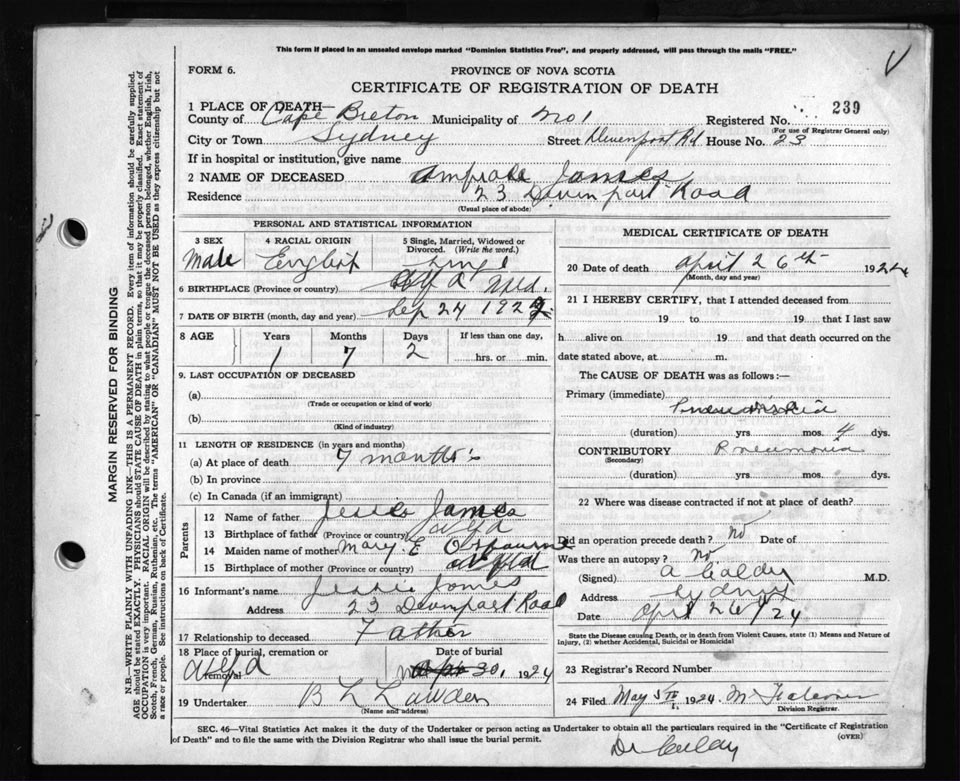 This form if placed in an unsealed envelope marked "Dominion Statistics Free", and properly addressed, will pass through the mails "FREE."
FORM 6.
PROVINCE OF NOVA SCOTIA
CERTIFICATE OF REGISTRATION OF DEATH
1 PLACE OF DEATH—
239
County of Cape Breton Municipality of No 1 Registered No.
(For use of Registrar General only)
City or Town Sydney Street Devenport Rd House No. 23
If in hospital or institution, give name
2 NAME OF DECEASED James
Residence 23 Devenport Road
(Usual place of abode)
PERSONAL AND STATISTICAL INFORMATION
3 SEX Male
4 RACIAL ORIGIN English
5 Single, Married, Widowed or Divorced. (Write the word.) Single
6 BIRTHPLACE (Province or country) Nfld.
7 DATE OF BIRTH (month, day and year) Sep 24 1922
8 AGE Years Months Days If less than one day,
1 7 2 hrs. or min.
9. LAST OCCUPATION OF DECEASED
(a)
(Trade or occupation or kind of work)
(b)
(Kind of industry)
11 LENGTH OF RESIDENCE (in years and months)
(a) At place of death 7 months
(b) In province
(c) In Canada (if an immigrant)
Parents
12 Name of father Jessie James
13 Birthplace of father (Province or country) Nfld
14 Maiden name of mother Mary E Osbourne
15 Birthplace of mother (Province or country) Nfld
16 Informant's name Jessie James
Address 23 Devenport Road
17 Relationship to deceased Father
18 Place of burial, cremation or removal Date of burial
Nfld 30, 1924
19 Undertaker B L Lawden
(Name and address)
MEDICAL CERTIFICATE OF DEATH
20 Date of death April 26th 1924
(Month, day and year)
21 I HEREBY CERTIFY, that I attended deceased from
19 to 19 that I last saw
h alive on 19 and that death occurred on the
date stated above, at m.
The CAUSE OF DEATH was as follows:—
Primary (immediate)
(duration) yrs. mos. 4 dys.
CONTRIBUTORY Pneumonia
(Secondary)
(duration) yrs. mos. dys.
22 Where was disease contracted if not at place of death?
Did an operation precede death? No Date of
Was there an autopsy? No
(Signed) A Calder M.D.
Address Sydney
Date April 26/24
State the Disease causing Death, or in death from Violent Causes, state (1) Means and Nature of Injury, (2) whether Accidental, Suicidal or Homicidal
23 Registrar's Record Number
24 Filed May 5th 1924
Division Registrar.
SEC. 46—Vital Statistics Act makes it the duty of the Undertaker or person acting as Undertaker to obtain all the particulars required in the "Certificate of Registration
of Death" and to file the same with the Division Registrar who shall issue the burial permit.
(OVER)
Dr
MARGIN RESERVED FOR BINDING
N.B.—WRITE PLAINLY WITH UNFADING INK—THIS IS A PERMANENT RECORD. Every item of information should be carefully supplied.
AGE should be stated EXACTLY. PHYSICIANS should STATE CAUSE OF DEATH in plain terms, so that it may be properly classified. Exact statement of
OCCUPATION is very important. RACIAL ORIGIN will be described by stating to what people or tongue the deceased person belonged, whether English, Irish,
Scotch, French, German, Russian, Ruthenian, etc. The terms "AMERICAN" or "CANADIAN" MUST NOT BE USED as they express citizenship but not
a race or people. See instructions on back of Certificate.